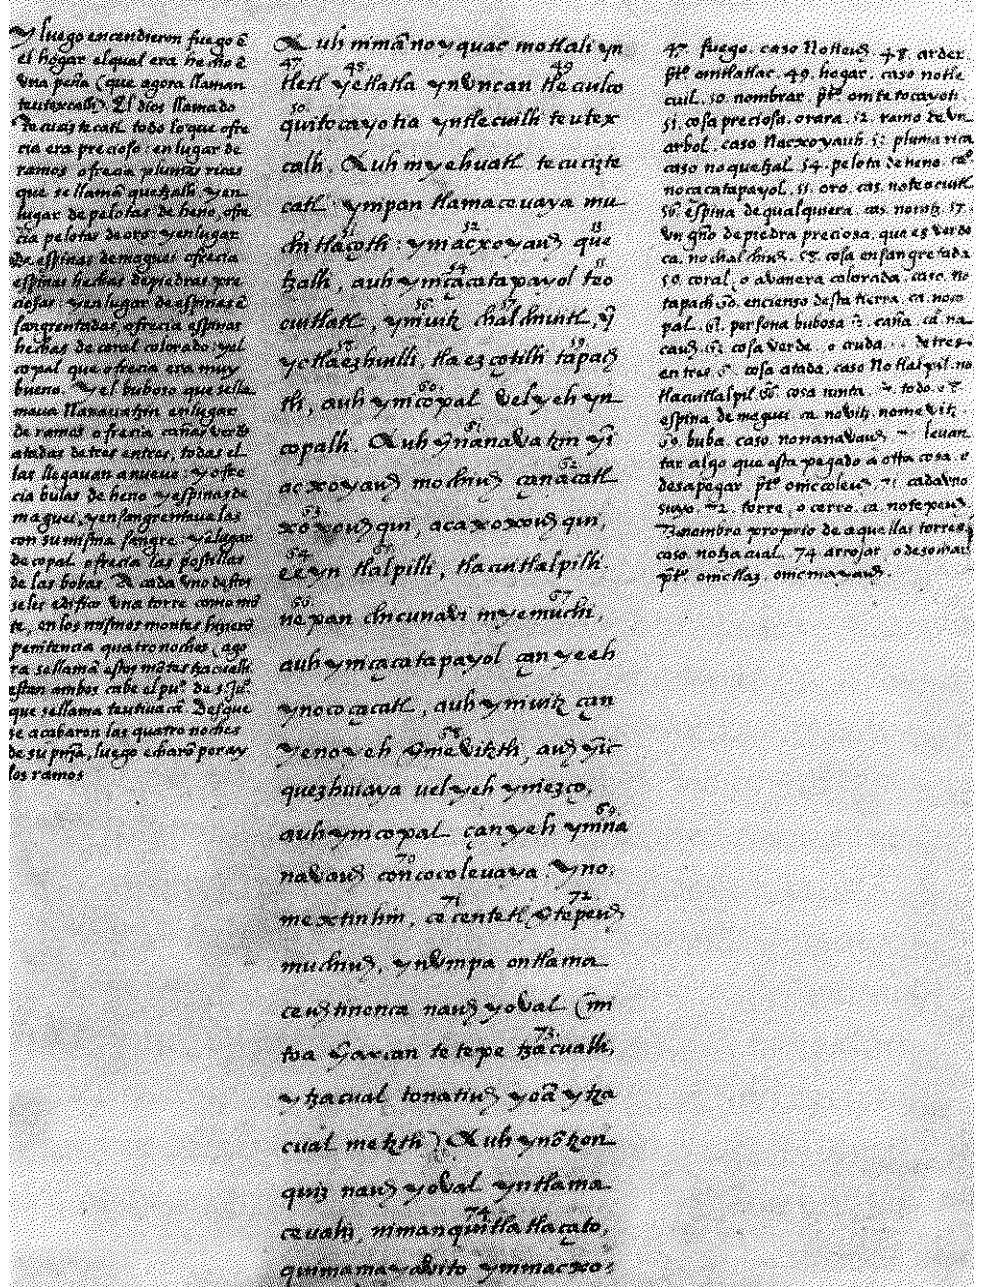 Y luego encendieron fuego ē
el hogar elqual era hecho ē
vna peña (que agora llaman
teutexcalli). El dios llamado
tecuciztecatl todo lo que ofre
cia era precioso: en lugar de
ramos ofrecia plumas ricas
que se llamā quetzalli yen
lugar de pelotas de heno, ofre
cia pelotas de oro: yen lugar
de espinas de maguei ofrecia
espinas hechas de piedras pre
ciosas: yen lugar de espinas ē
sangrentadas, ofrecia espinas
hechas de coral colorado: yel
copal que ofrecia era muy
bueno. Y el buboso que sella
maua Nanauatzin en lugar
de ramos ofrecia cañas verdes
atadas de tres entres, todas el
las llegauan anueue: y ofre
cia bulas de heno y espinas de
maguei, yensangrentaua las
con su misma sangre. Y en lugar
de copal ofrecia las postillas
de las bobas. A cada vno destos
seles edifico vna torre como mō
te, en los mismos montes hizierō
penitencia quatro noches (ago
ra se llamā estos mōtes tzacualli
estan ambos cabe el puº de s. Juº
que se llama teutiuacā. Desque
se acabaron las quatro noches
de su pnja, luego echarō por ay
los ramos
Auh nimā no yquac motlali yn
47 48 49
tletl yetlatla ynvncan tlecuilco
50
quitocayotia yntlecuilli teutex
calli. Auh inyehuatl tecucizte
catl ympan tlamaceuaya mu
52 53
chi tlaçotli: ymacxoyauh que
54 55
tzalli, auh yniçacatapayol teo
56 57
cuitlatl, yniuitz chalchiuitl, ỹ
58 59
yc tlaezhuilli, tlaezçotilli tapach
60
tli, auh ynicopal velyeh yn
61
copalli. Auh ynanavatzin ỹi
62
acxoyauh mochiuh çan acatl
63
xoxouhqui, acaxoxouhqui,
64 65
eeyn tlalpilli, tlacuitlalpilli.
66 67
nepan chicunavi inyemuchi,
auh yniçacatapayol çan yeeh
ynocoçacatl, auh yniuitz çan
68
yenoyeh ỹmevitztli, auh ỹic
quezhuiaya uelyeh yniezço,
69
auh ynicopal çan yeh ynina
70
navauh concocoleuaya. Yno,
71 72
mextinhin, cecentetl ỹtepeuh
muchiuh, ynvmpa ontlama
ceuhtinenca nauhyoval (mi
73
toa ỹaxcan tetepe tzacualli,
ytzacual tonatiuh yoā ytza
cual metztli) Auh ynōtzon
quiz nauhyoval yntlama
74
ceualiz, niman quitlatlaçato,
quimamayauito yn imacxo:
47. fuego. caso Notleuh 48. arder.
ptº. omtlatlac. 49. hogar. caso notle
cuil. 50. nombrar. ptº. omtetocayoti.
51. cosa preciosa. o rara. 52. ramo de vn
arbol. caso Nacxoyauh. 53. pluma rica
caso noquetzal 54. pelota de heno. caº
noçacatapayol. 55. oro. cas. noteocuitl
56. espina de qualquiera. cas. nouitz. 57.
vn gnº de piedra preciosa. que es verde
ca. nochalchiuh. 58. cosa ensangretada
59. coral, o avanera colorada. caso. no
tapach 60. encienso desta tierra. ca. noco
pal. 61. persona bubosa 62. caña. ca. na
cauh. 63. cosa verde. o cruda. 64. de tres
en tres 65. cosa atada. caso Notlalpil. no
tlacuitlalpil. 66. cosa iunta. 67. todo. 68.
espina de maguei. ca. novitz. nomevitz.
69. buba. caso nonanavauh 70. levan
tar algo que esta pegado a otta cosa. o
desapegar ptº. omcoleuh. 71. cadavno
suyo. 72. torre, o cerro. ca. notepeuh
73. nombre proprio de aquellas torres,
caso. notzacual. 74 arrojar, o desomar
ptº. omctlaz, omcmayauh.